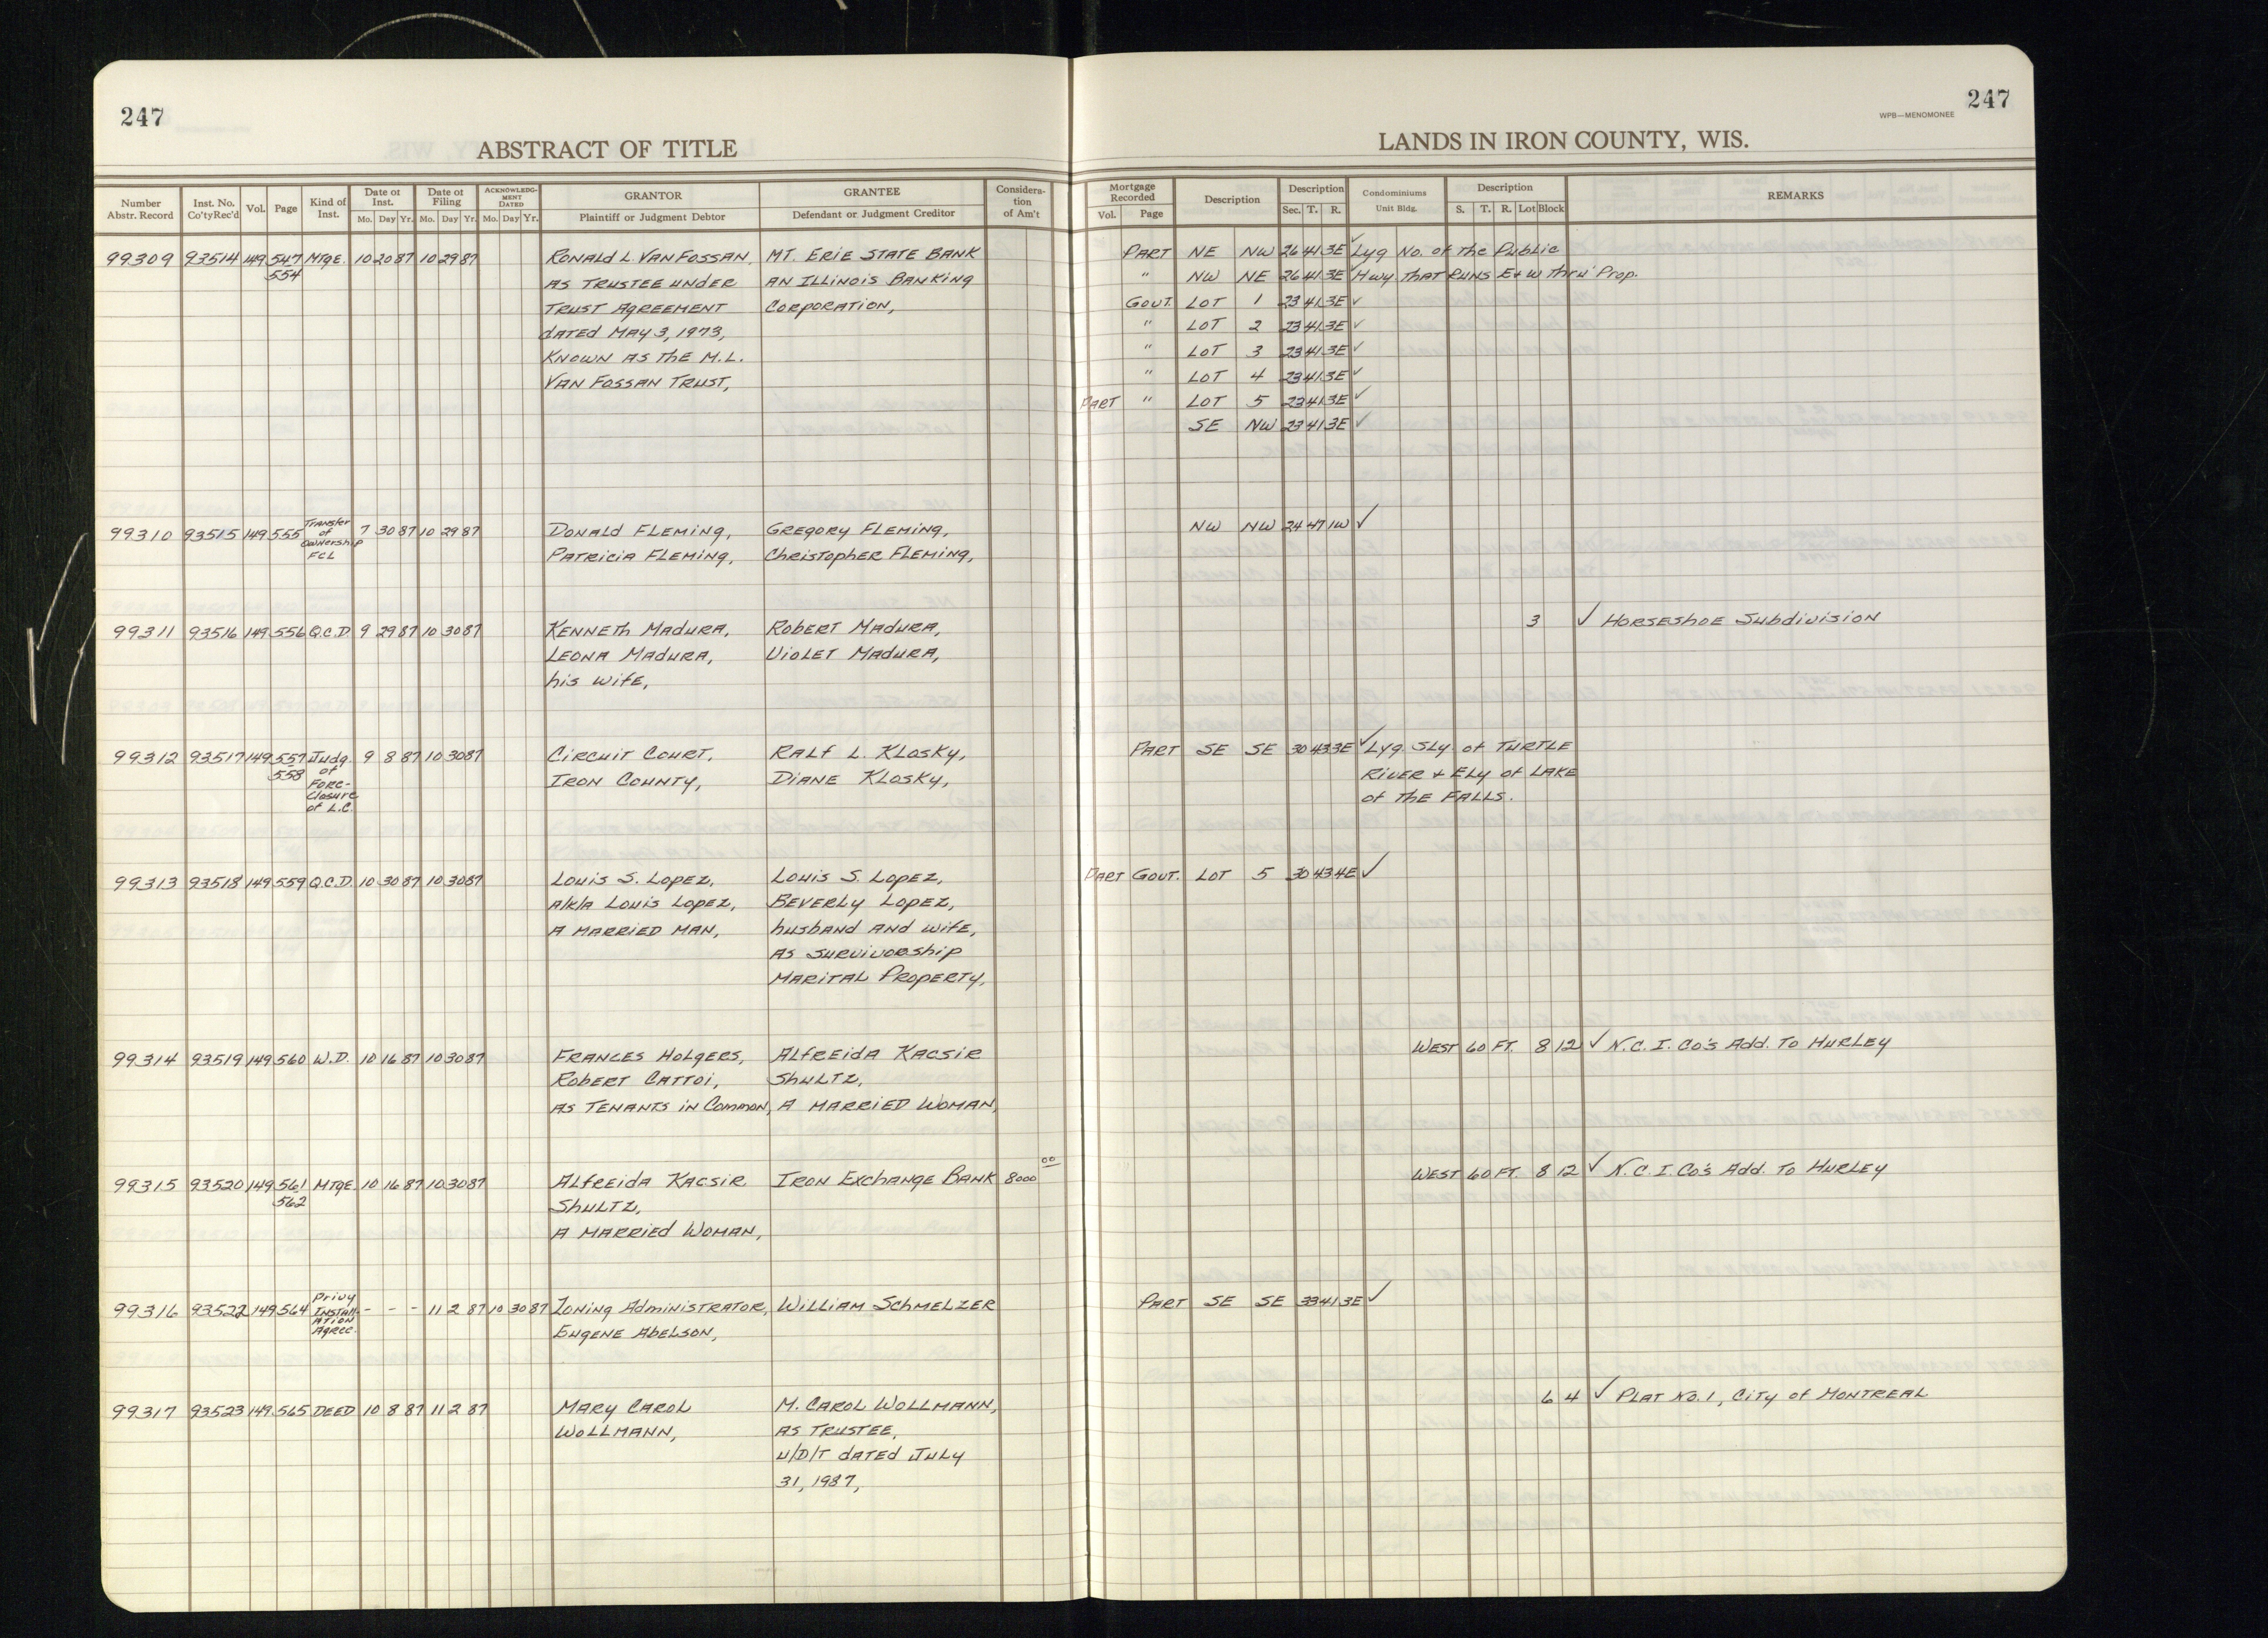 247
247
WPB—MENOMONEE
ABSTRACT OF TITLE
LANDS IN IRON COUNTY, WIS.
Number Abstr. Record Inst. No. Co'ty Rec'd Vol. Page Kind of Inst. Date of Inst. Mo. Day Yr. Date of Filing Mo. Day Yr. ACKNOWLEDGMENT DATED Mo. Day Yr. GRANTOR Plaintiff or Judgment Debtor GRANTEE Defendant or Judgment Creditor Consideration of Am't
Mortgage Recorded Vol. Page Description Description Sec. T. R. Condominiums Unit Bldg. Description S. T. R. Lot Block REMARKS
99309 93514 149 547 Mtge. 10 20 87 10 29 87 Ronald L. Van Fossan, Mt. Erie State Bank Part NE NW 26 41 3E ✓ Lyg No. of the Public
554 as Trustee under an Illinois Banking " NW NE 26 41 3E ✓ Hwy that runs E & W thru Prop.
Trust Agreement Corporation, Gout. Lot 1 23 41 3E ✓
dated May 3, 1973, " Lot 2 23 41 3E ✓
Known as the M.L. " Lot 3 23 41 3E ✓
Van Fossan Trust, " Lot 4 23 41 3E ✓
Part " Lot 5 23 41 3E ✓
SE NW 23 41 3E ✓
99310 93515 149 555 Transfer of Ownership FCL 7 30 87 10 29 87 Donald Fleming, Gregory Fleming, NW NW 24 47 1W ✓
Patricia Fleming, Christopher Fleming,
99311 93516 149 556 Q.C.D. 9 29 87 10 30 87 Kenneth Madura, Robert Madura, 3 ✓ Horseshoe Subdivision
Leona Madura, Violet Madura,
his wife,
99312 93517 149 557 Judg. 9 8 87 10 30 87 Circuit Court, Ralf L. Klosky, Part SE SE 30 43 3E ✓ Lyg. Sly. of Turtle
558 of Foreclosure of L.C. Iron County, Diane Klosky, River & Ely of Lake
of the Falls.
99313 93518 149 559 Q.C.D. 10 30 87 10 30 87 Louis S. Lopez, Louis S. Lopez, Part Gout. Lot 5 30 43 4E ✓
a/k/a Louis Lopez, Beverly Lopez,
a married man, husband and wife,
as survivorship
marital property,
99314 93519 149 560 W.D. 10 16 87 10 30 87 Frances Holgers, Alfreida Kacsir West 60 Ft. 8 12 ✓ N.C.I. Co's Add. To Hurley
Robert Cattoi, Shultz,
as Tenants in Common, a married woman,
99315 93520 149 561 Mtge. 10 16 87 10 30 87 Alfreida Kacsir Iron Exchange Bank 8000 00 West 60 Ft. 8 12 ✓ N.C.I. Co's Add. To Hurley
562 Shultz,
a married woman,
99316 93522 149 564 Privy Installation Agree. - - - 11 2 87 10 30 87 Zoning Administrator, William Schmelzer Part SE SE 33 41 3E ✓
Eugene Abelson,
99317 93523 149 565 Deed 10 8 87 11 2 87 Mary Carol M. Carol Wollmann, 6 4 ✓ Plat No. 1, City of Montreal
Wollmann, as Trustee,
u/D/T dated July
31, 1987,